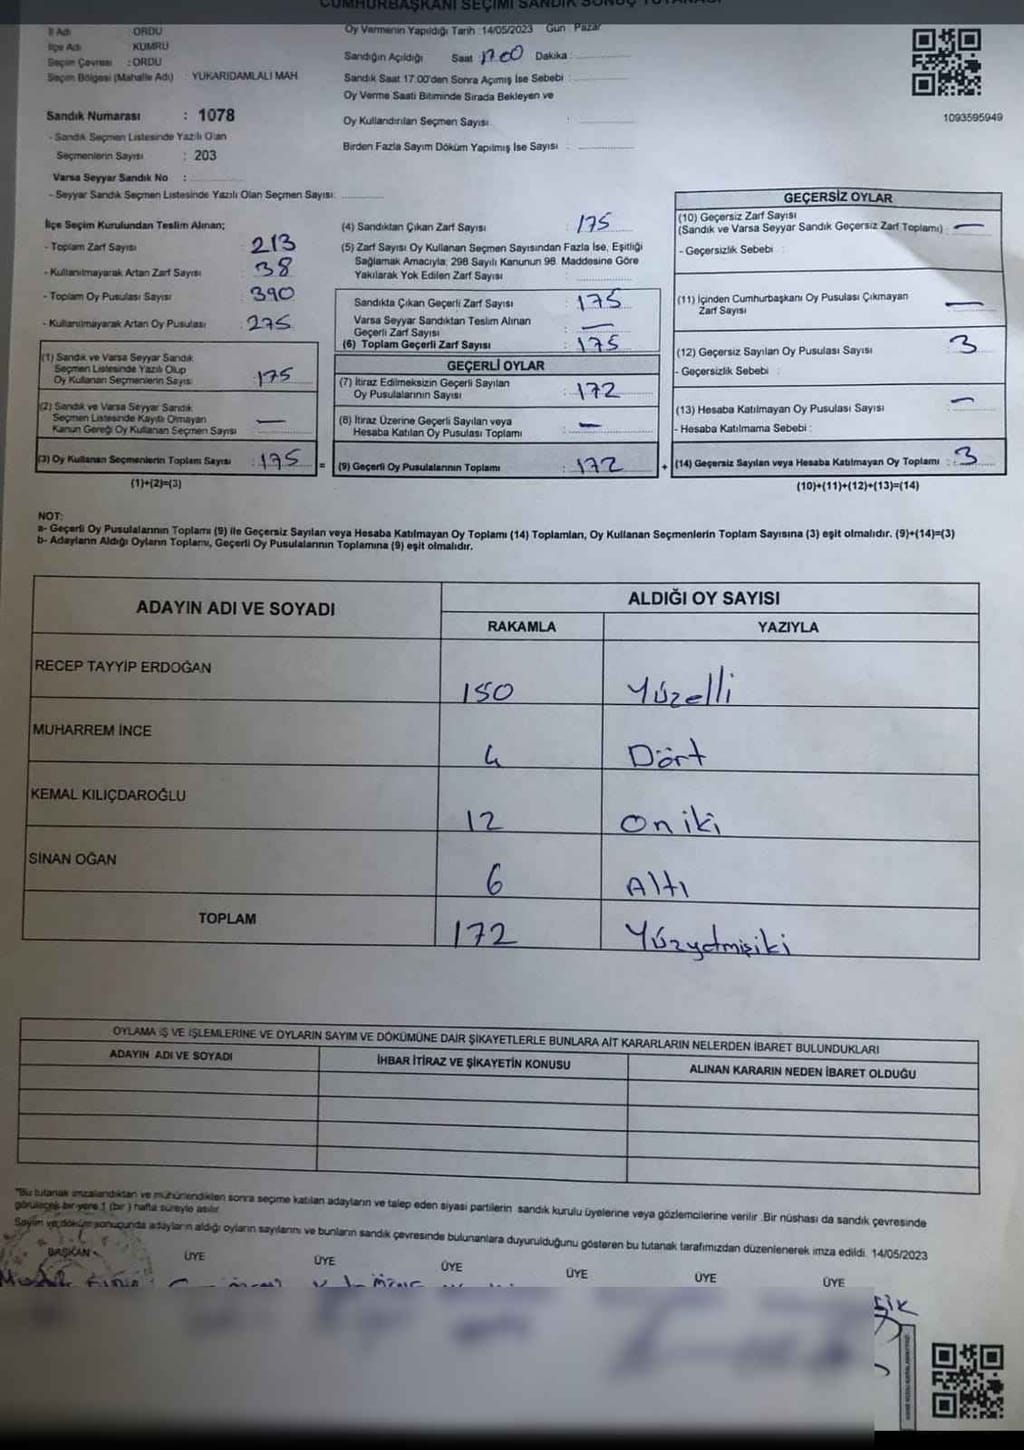 CUMHURBAŞKANI SEÇİMİ SANDIK SONUÇ TUTANAĞI
İl Adı : ORDU
İlçe Adı : KUMRU
Seçim Çevresi : ORDU
Seçim Bölgesi (Mahalle Adı) : YUKARIDAMLALI MAH
Oy Vermenin Yapıldığı Tarih :14/05/2023 Gün : Pazar
Sandığın Açıldığı Saat : 1700 Dakika :
Sandık Saat 17:00'den Sonra Açımış İse Sebebi :
Oy Verme Saati Bitiminde Sırada Bekleyen ve
Oy Kullandırılan Seçmen Sayısı :
Birden Fazla Sayım Döküm Yapılmış İse Sayısı :
1093595949
Sandık Numarası : 1078
- Sandık Seçmen Listesinde Yazılı Olan
Seçmenlerin Sayısı : 203
Varsa Seyyar Sandık No :
- Seyyar Sandık Seçmen Listesinde Yazılı Olan Seçmen Sayısı:
İlçe Seçim Kurulundan Teslim Alınan;
- Toplam Zarf Sayısı : 213
- Kullanılmayarak Artan Zarf Sayısı : 38
- Toplam Oy Pusulası Sayısı : 390
- Kullanılmayarak Artan Oy Pusulası : 275
(1) Sandık ve Varsa Seyyar Sandık
Seçmen Listesinde Yazılı Olup
Oy Kullanan Seçmenlerin Sayısı : 175
(2) Sandık ve Varsa Seyyar Sandık
Seçmen Listesinde Kayıtlı Olmayan
Kanun Gereği Oy Kullanan Seçmen Sayısı : —
(3) Oy Kullanan Seçmenlerin Toplam Sayısı : 175 =
(1)+(2)=(3)
(4) Sandıktan Çıkan Zarf Sayısı : 175
(5) Zarf Sayısı Oy Kullanan Seçmen Sayısından Fazla İse, Eşitliği
Sağlamak Amacıyla; 298 Sayılı Kanunun 98. Maddesine Göre
Yakılarak Yok Edilen Zarf Sayısı :
Sandıkta Çıkan Geçerli Zarf Sayısı : 175
Varsa Seyyar Sandıktan Teslim Alınan
Geçerli Zarf Sayısı : —
(6) Toplam Geçerli Zarf Sayısı : 175
GEÇERLİ OYLAR
(7) İtiraz Edilmeksizin Geçerli Sayılan
Oy Pusulalarının Sayısı : 172
(8) İtiraz Üzerine Geçerli Sayılan veya
Hesaba Katılan Oy Pusulası Toplamı : —
(9) Geçerli Oy Pusulalarının Toplamı : 172 +
GEÇERSİZ OYLAR
(10) Geçersiz Zarf Sayısı
(Sandık ve Varsa Seyyar Sandık Geçersiz Zarf Toplamı) : —
- Geçersizlik Sebebi :
(11) İçinden Cumhurbaşkanı Oy Pusulası Çıkmayan
Zarf Sayısı : —
(12) Geçersiz Sayılan Oy Pusulası Sayısı : 3
- Geçersizlik Sebebi :
(13) Hesaba Katılmayan Oy Pusulası Sayısı : —
- Hesaba Katılmama Sebebi :
(14) Geçersiz Sayılan veya Hesaba Katılmayan Oy Toplamı : 3
(10)+(11)+(12)+(13)=(14)
NOT:
a- Geçerli Oy Pusulalarının Toplamı (9) ile Geçersiz Sayılan veya Hesaba Katılmayan Oy Toplamı (14) Toplamları, Oy Kullanan Seçmenlerin Toplam Sayısına (3) eşit olmalıdır. (9)+(14)=(3)
b- Adayların Aldığı Oyların Toplamı, Geçerli Oy Pusulalarının Toplamına (9) eşit olmalıdır.
ADAYIN ADI VE SOYADI ALDIĞI OY SAYISI
RAKAMLA YAZIYLA
RECEP TAYYİP ERDOĞAN 150 Yüzelli
MUHARREM İNCE 4 Dört
KEMAL KILIÇDAROĞLU 12 On iki
SİNAN OĞAN 6 Altı
TOPLAM 172 Yüzyetmişiki
OYLAMA İŞ VE İŞLEMLERİNE VE OYLARIN SAYIM VE DÖKÜMÜNE DAİR ŞİKAYETLERLE BUNLARA AİT KARARLARIN NELERDEN İBARET BULUNDUKLARI
ADAYIN ADI VE SOYADI İHBAR İTİRAZ VE ŞİKAYETİN KONUSU ALINAN KARARIN NEDEN İBARET OLDUĞU
"Bu tutanak imzalandıktan ve mühürlendikten sonra seçime katılan adayların ve talep eden siyasi partilerin sandık kurulu üyelerine veya gözlemcilerine verilir. Bir nüshası da sandık çevresinde
görülecek bir yere 1 (bir) hafta süreyle asılır.
Sayım ve döküm sonucunda adayların aldığı oyların sayılarını ve bunların sandık çevresinde bulunanlara duyurulduğunu gösteren bu tutanak tarafımızdan düzenlenerek imza edildi. 14/05/2023
BAŞKAN ÜYE ÜYE ÜYE ÜYE ÜYE ÜYE